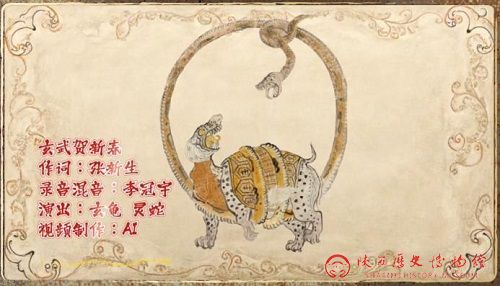 玄武贺新春
作词：张新生
录音混音：李冠宇
演出：玄龟 灵蛇
视频制作：AI
陕西历史博物馆
SHAANXI HISTORY MUSEUM